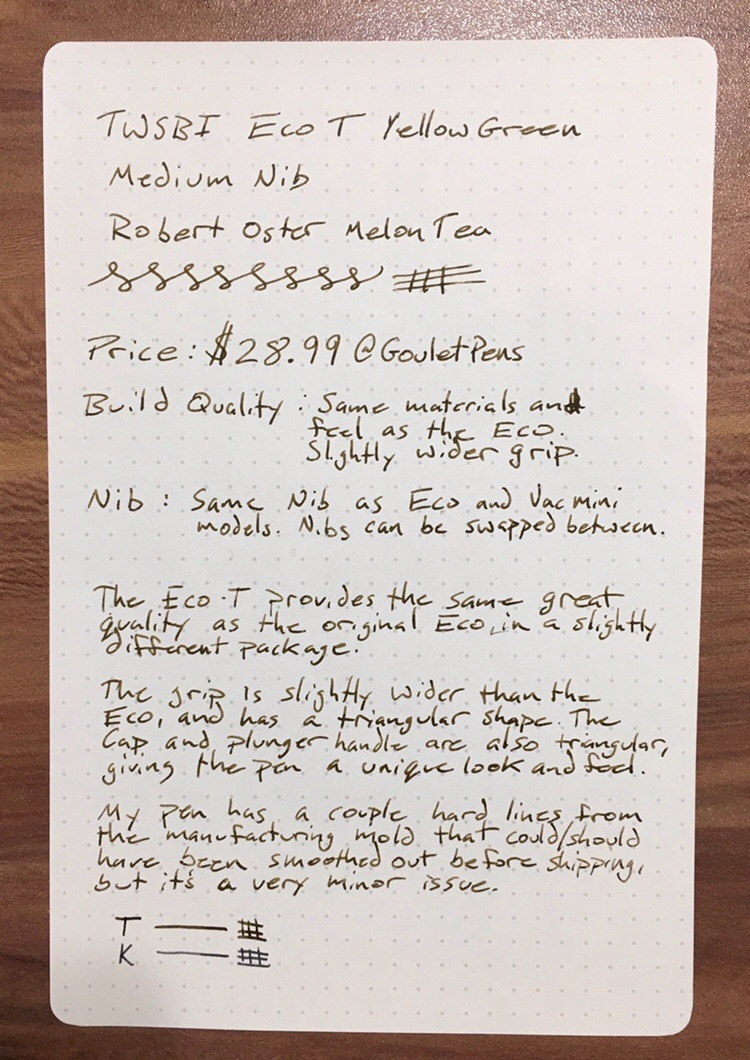 TWSBI Eco T Yellow Green
Medium Nib
Robert Oster Melon Tea
Price: $28.99 @GouletPens
Build Quality: Same materials and
feel as the Eco.
Slightly wider grip.
Nib: Same Nib as Eco and Vac mini
models. Nibs can be swapped between.
The Eco-T provides the same great
quality as the original Eco, in a slightly
different package.
The grip is slightly wider than the
Eco, and has a triangular shape. The
Cap and plunger handle are also triangular,
giving the pen a unique look and feel.
My pen has a couple hard lines from
the manufacturing mold that could/should
have been smoothed out before shipping,
but it's a very minor issue.
T
K